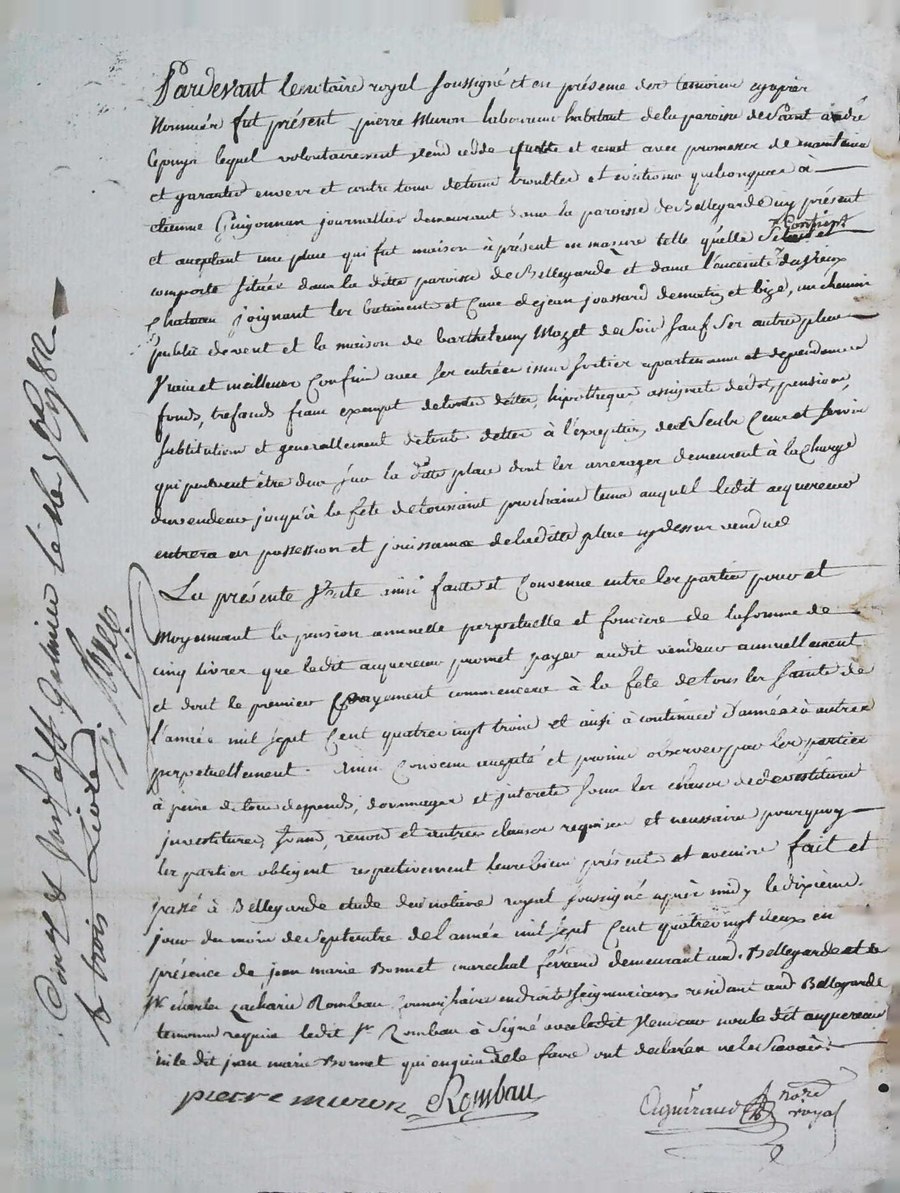 Pardevant le notaire royal soussigné et en présence des temoins cy aprés
Nommés fut présent pierre Muron laboureur habitant de la paroisse de Saint andré
le puys lequel volontairement vend cede quitte et remet avec promesse de maintenir
et garantir envers et contre tous de tous troubles et evictions quelconques à
etienne Guijonnan journallier demeurant dans la paroisse de Bellegarde icy présent
et acceptant une place qui fut maison à présent en masure telle quelle se contient et
comporte située dans la ditte paroisse de Bellegarde et dans l'enceinte du vieux
Chateau joignant les batiment et Cave de jean joassard de matin et bize, un chemin
public de vent et la maison de barthelemy Mazet de soir sauf ses autres plus
Vrais et meilleurs Confins avec ses entrées issues sorties apartenances et dependances
fonds, trefonds franc exempt de toutes dettes, hipothèque assignats de dot, pension,
substitution et generallement de toute dettes à l'exception des seuls Cens et servis
qui peuvent être dus sur la ditte place dont les arrerages demeurent à la Charge
du vendeur jusqu'à la fête de toussaint prochaine tems auquel ledit acquereur
entrera en possession et jouissance de laditte place cy dessus vendue
La présente Vente ainsi faitte et Convenue entre les parties pour et
Moyennant la pension annuelle perpetuelle et fonciere de la somme de
cinq livres que ledit acquereur promet payer audit vendeur annuellement
et dont le premier payement commencera à la fête de tous les saints de
l'année mil sept Cent quatre vingt trois et ainsi à continuer d'années à autres
perpetuellement. Ainsi Convenu accepté et promis observer par les parties
à peine de tous depends, dommages et interets sous les clauses de devestiture
investiture, et autres clauses requises et necessaires pourquoy
les parties obligent respectivement leurs biens présents et avenirs fait et
passé à Bellegarde etude du notaire royal soussigné après midy le dixième
jour du mois de Septembre de l'année mil sept Cent quatre vingt deux en
présence de jean marie Bonnet marechal demeurant aud. Bellegarde et de
Sr charles Zacharie Rombau Commissaire en droits Seigneuriaux residant aud Bellegarde
temoins requis ledit Sr Rombau à signé avec ledit Vendeur non ledit acquereur
ni le dit jean marie Bonnet qui enquis de le faire ont déclarés ne le Scavoir.
pierre muron Rombau
nore
royal
Con.lé &amp; à St Galmier le
&amp; trois Livres